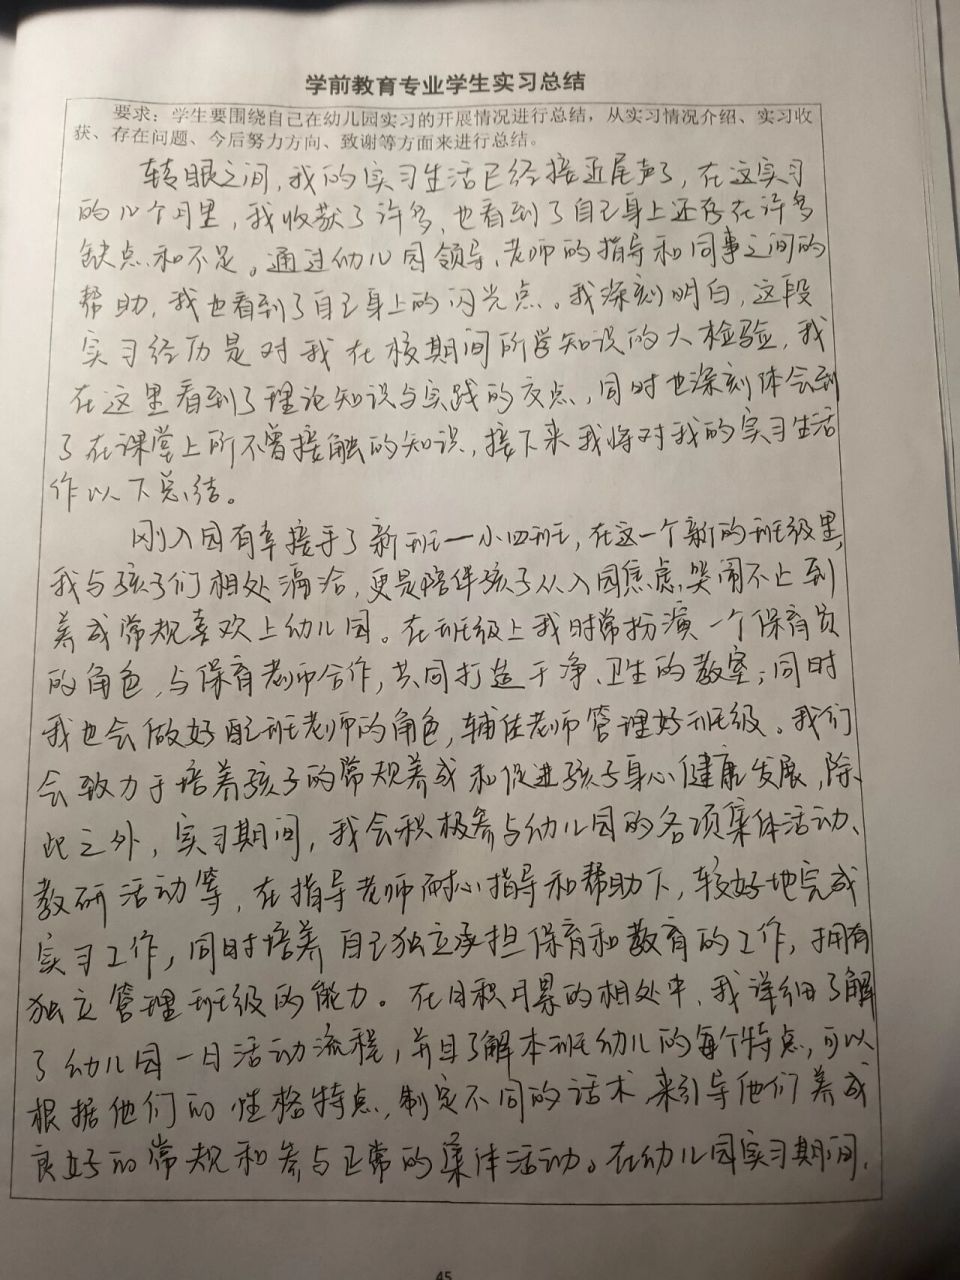 学前教育专业学生实习总结
要求：学生要围绕自己在幼儿园实习的开展情况进行总结，从实习情况介绍、实习收
获、存在问题、今后努力方向、致谢等方面来进行总结。
转眼之间，我的实习生活已经接近尾声了，在这实习
的几个月里，我收获了许多，也看到了自己身上还存在许多
缺点和不足。通过幼儿园领导、老师的指导和同事之间的
帮助，我也看到了自己身上的闪光点。我深刻明白，这段
实习经历是对我在校期间所学知识的大检验，我
在这里看到了理论知识与实践的交点，同时也深刻体会到
了在课堂上所不曾接触的知识，接下来我将对我的实习生活
作以下总结。
刚入园有幸接手了新班一小四班，在这一个新的班级里，
我与孩子们相处满洽，更是陪伴孩子从入园焦虑、哭闹不止到
养成常规喜欢上幼儿园。在班级上我时常扮演一个保育员
的角色，与保育老师合作，共同打造干净、卫生的教室；同时
我也会做好配班老师的角色，辅佐老师管理好班级。我们
会致力于培养孩子的常规养成和促进孩子身心健康发展，除
此之外，实习期间，我会积极参与幼儿园的各项集体活动、
教研活动等，在指导老师耐心指导和帮助下，较好地完成
实习工作，同时培养自己独立承担保育和教育的工作，拥有
独立管理班级的能力。在日积月累的相处中，我详细了解
了幼儿园一日活动流程，并且了解本班幼儿的每个特点，可以
根据他们的性格特点，制定不同的话术来引导他们养成
良好的常规和参与正常的集体活动。在幼儿园实习期间，
45